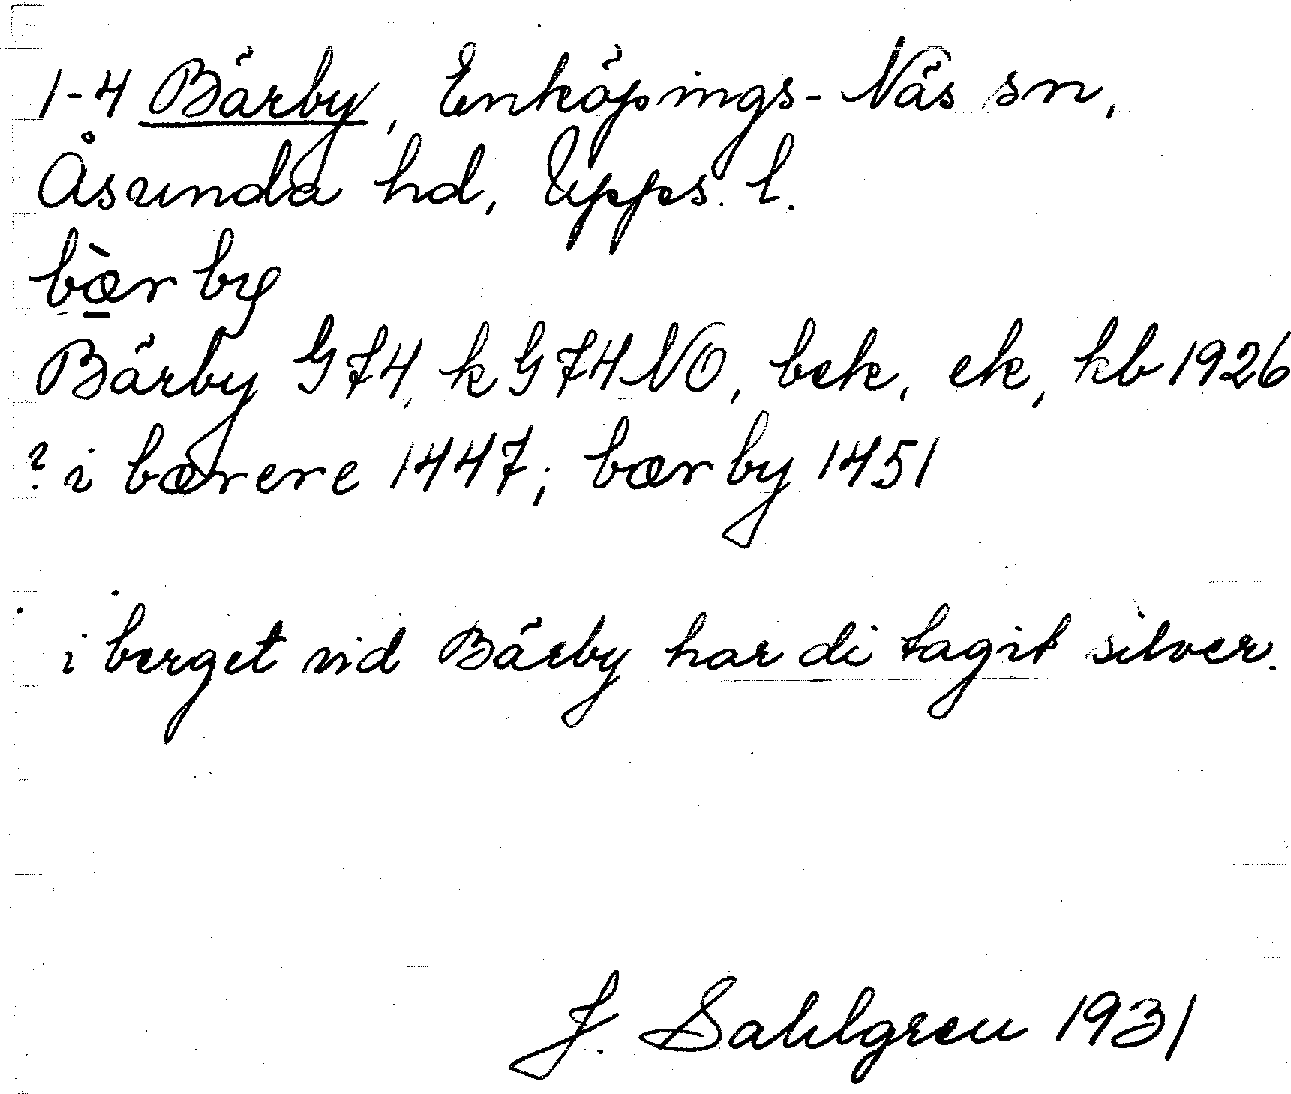 1-4 Bärby, Enköpings-Näs sn,
Åsunda hd, Upps. l.
bæ̀r by
Bärby G74, k G74NO, bek, ek, kb 1926
? i bærere 1447; bærby 1451
i berget vid Bärby har di tagit silver.
J. Sahlgren 1931